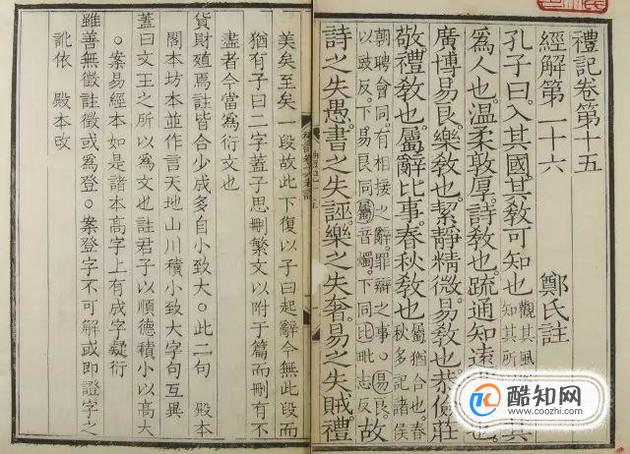 禮記卷第十五
經解第二十六 鄭氏註
孔子曰入其國其教可知也 觀其風 其
知其所
為人也溫柔敦厚詩教也疏通知遠 也
廣博易良樂教也絜靜精微易教也恭儉莊
敬禮教也屬辭比事春秋教也 屬猶合也春
秋多記諸侯
朝聘會同有相接之辭罪辯之事○易良
以豉反下易良同屬音燭下同比毗志反 故
詩之失愚書之失誣樂之失奢易之失賊禮
美矣至矣一段故此下復以子曰起辭今無此段而
猶有子曰二字蓋子思刪繁文以附于篇而刪有不
盡者今當為衍文也
貨財殖焉註皆合少成多自小致大○此二句 殿本
閣本坊本並作言天地山川積小致大字句互異
蓋曰文王之所以為文也註君子以順德積小以高大
○案易經本如是諸本高字上有成字疑衍
雖善無徵註徵或為登○案登字不可解或即證字之
訛依 殿本改
酷知网
www.coozhi.com